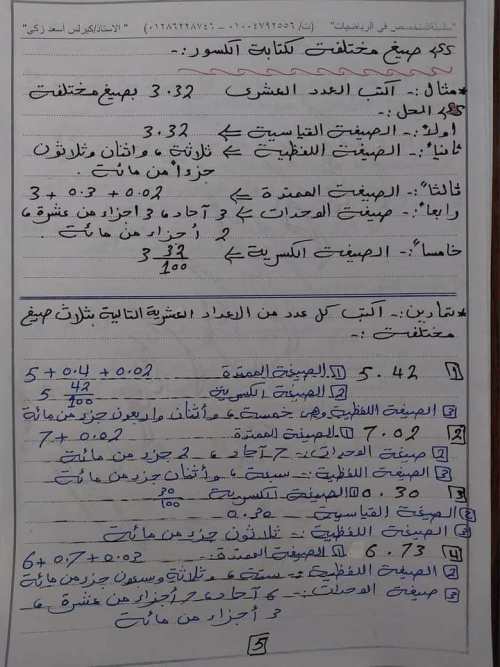 "سلسلة المتخصص في الرياضيات" (ت/ ٠١٠٠٤٧٩٢٥٥٦ – ٠١٢٨٦٢٢٨٧٤٦) "الاستاذ/كيرلس أسعد زكى"
صيغ مختلفة لكتابة الكسور :-
* مثال :- أكتب العدد العشرى 3.32 بصيغ مختلفة
الحل :-
أولاً :- الصيغة القياسية ⇐ 3.32
ثانياً :- الصيغة اللفظية ⇐ ثلاثة ، واثنان وثلاثون
جزءاً من مائة .
ثالثاً :- الصيغة الممتدة ⇐ 3 + 0.3 + 0.02
رابعاً :- صيغة الوحدات ⇐ 3 آحاد ، 3 اجزاء من عشرة ،
2 أجزاء من مائة .
خامساً :- الصيغة الكسرية ⇐ 3 32/100
* تمارين :- أكتب كل عدد من الاعداد العشرية التالية بثلاث صيغ
مختلفة :-
1 5.42 1 الصيغة الممتدة 5 + 0.4 + 0.02
2 الصيغة الكسرية 5 42/100
3 الصيغة اللفظية وهى خمسة ، وأثنان واربعون جزء من مائة
2 7.02 1 الصيغة الممتدة 7 + 0.02
2 صيغة الوحدات :- 7 آحاد ، 2 جزء من مائة
3 الصيغة اللفظية :- سبعة ، وأثنان جزء من مائة
3 0.30 1 الصيغة الكسرية 30/100
2 الصيغة القياسية 0.30
3 الصيغة اللفظية :- ثلاثون جزء من مائة
4 6.73 1 الصيغة الممتدة :- 6 + 0.7 + 0.03
2 الصيغة اللفظية :- ستة ، وثلاثة وسبعون جزء من مائة
3 صيغة الوحدات :- 6 آحاد ، 7 أجزاء من عشرة ،
3 أجزاء من مائة
5